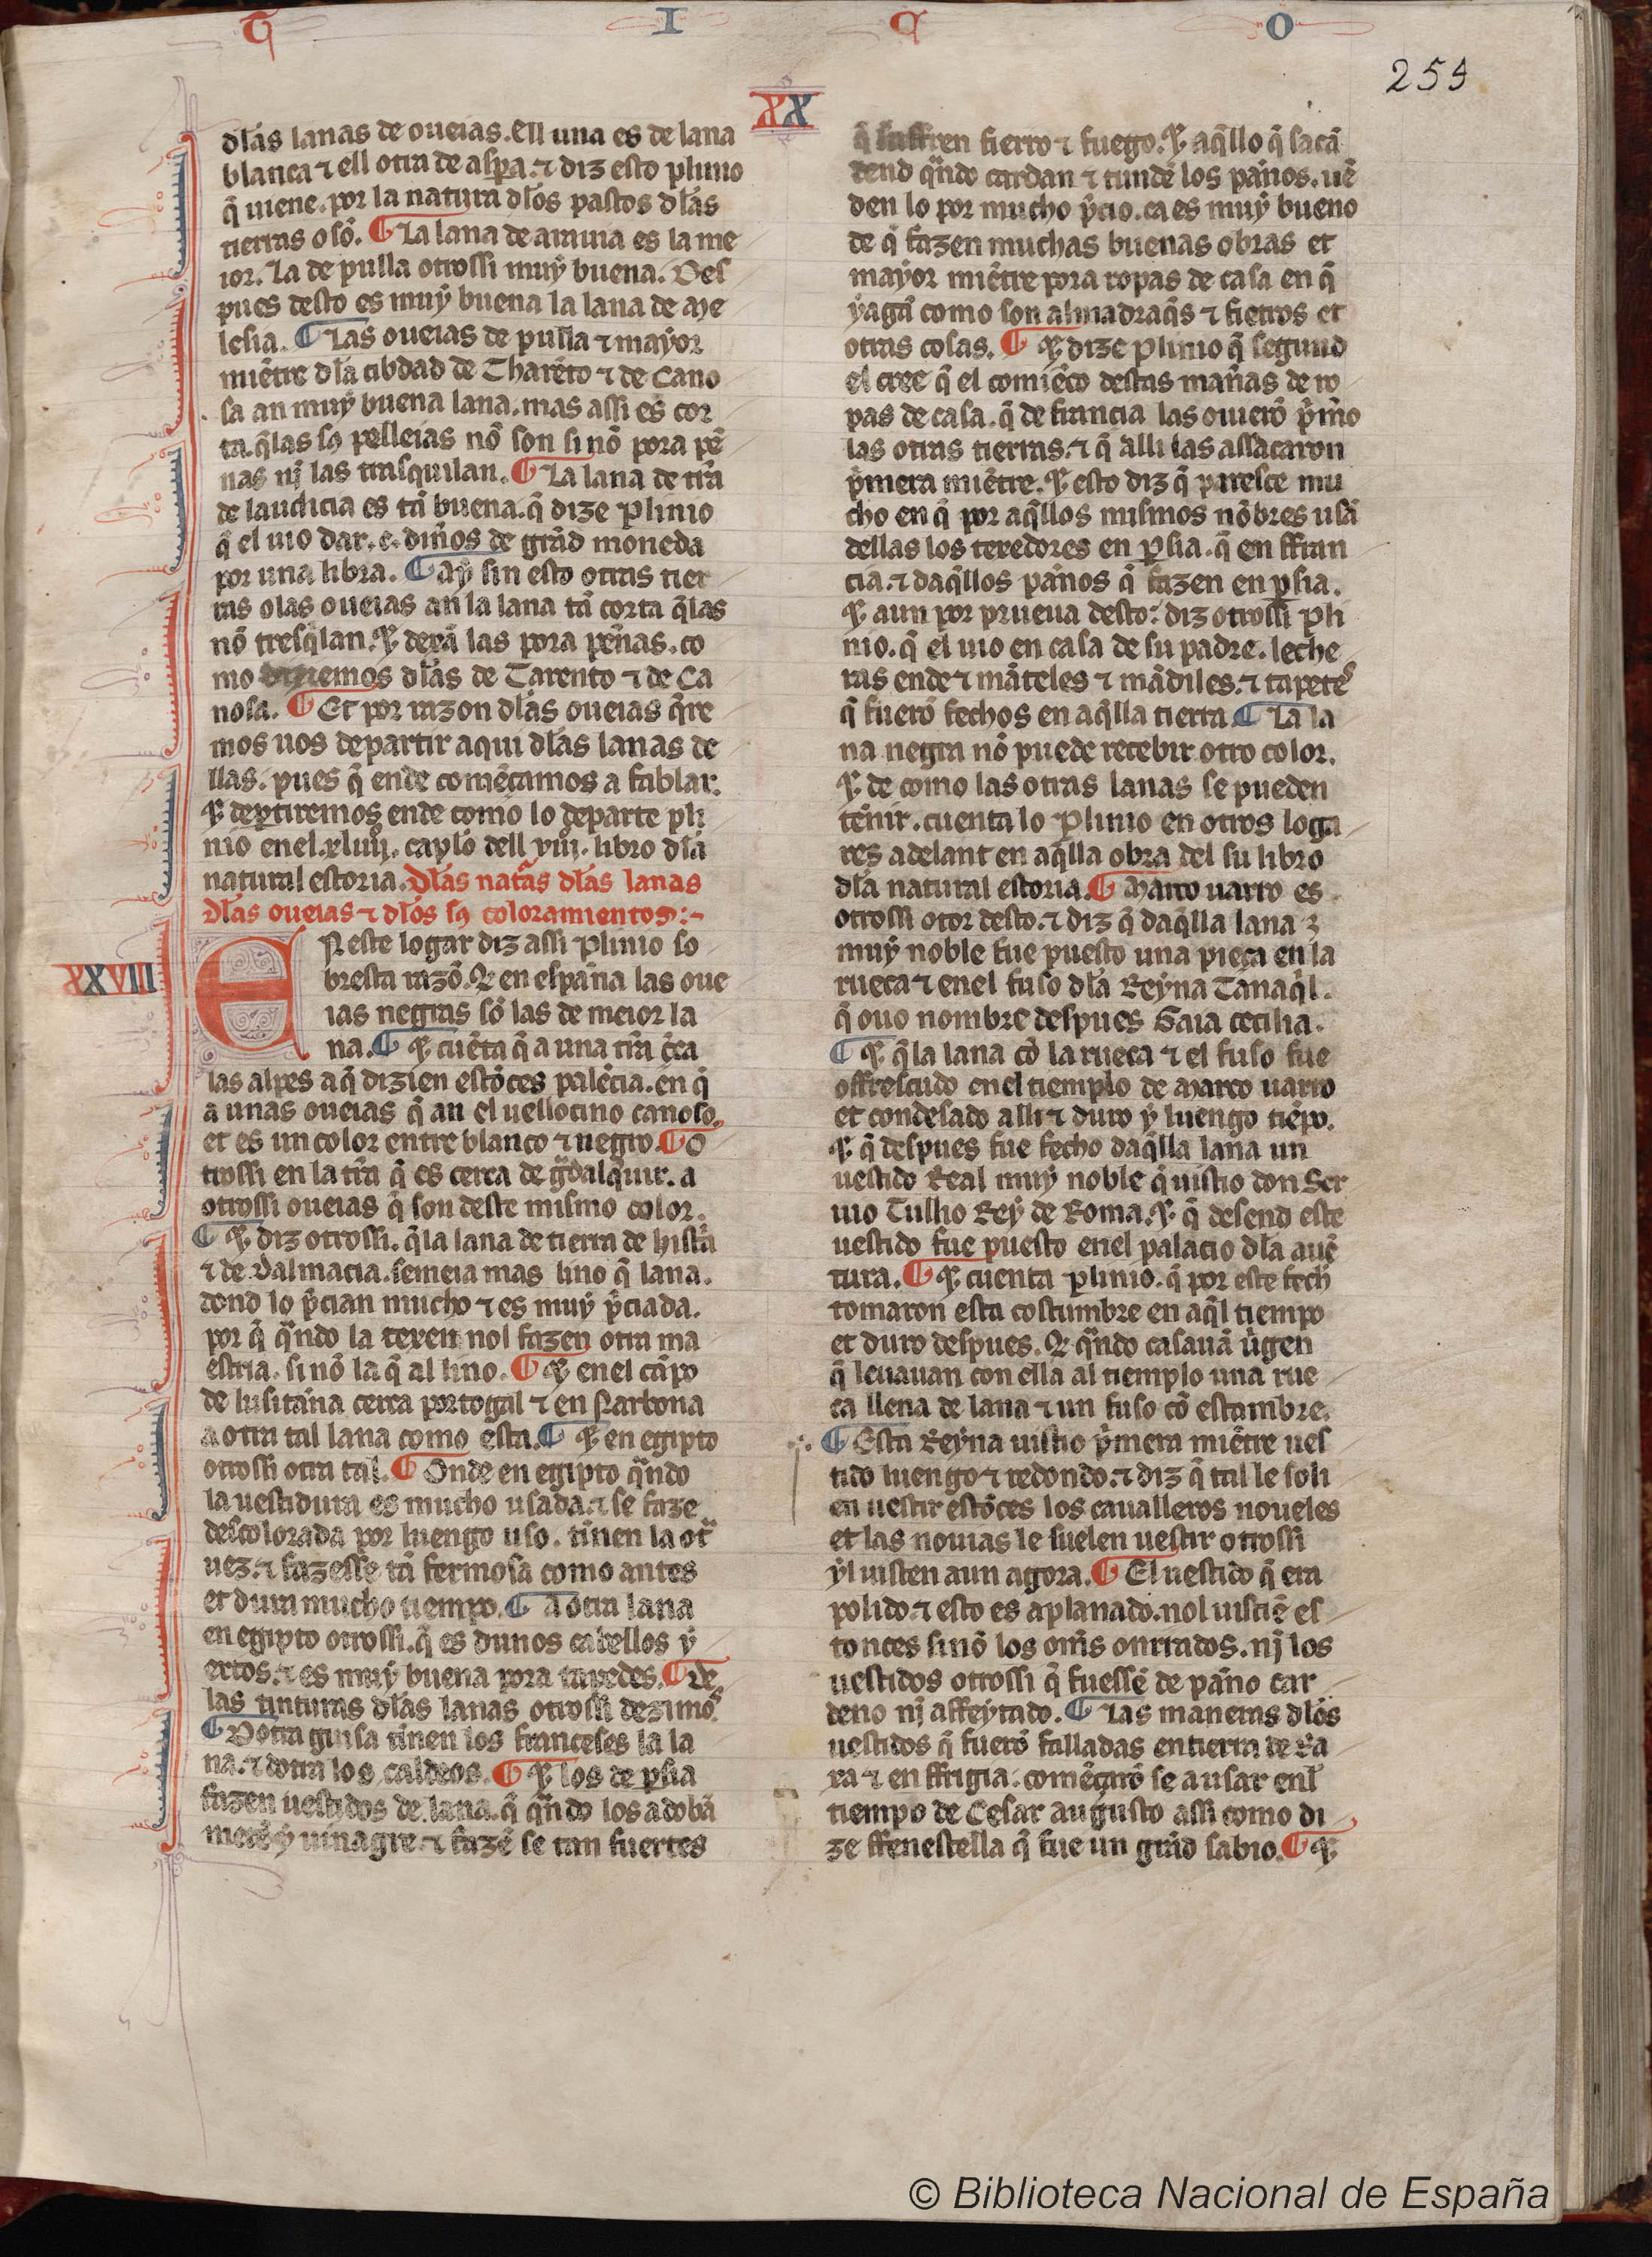 T I C O
259
XX
dlas lanas de oueias. Ell una es de lana
blanca ⁊ ell otra de aspa. ⁊ diz esto plinio
q̃ uiene. por la natura dlos pastos dlas
tierras o sõ. ¶ La lana de arania es la me
ior. La de pulla otrossi muẏ buena. Des
pues desto es muẏ buena la lana de Me
lesia. ¶ Las oueias de pulla ⁊ mayor
miẽtre dla cibdad de Tharẽto ⁊ de Cano
sa an muẏ buena lana. mas assi es cor
ta. q̃las sꝯ pelleias nõ son si nõ pora pẽ
nas nj̃ las trasquilan. ¶ La lana de tr̃ra
de laudicia es tã buena. q̃ dize Plinio
q̃ el uio dar .c. din̾os de grãd moneda
por una libra. ¶ Aẏ sin esto otras tier
ras o las oueias an la lana tã corta q̃las
nõ tresq̃lan. ⁊ dexã las pora pennas. co
mo dixiemos dlas de Tarento ⁊ de Ca
nosa. ¶ Et por razon dlas oueias q̃re
mos uos departir aqui dlas lanas de
llas. pues q̃ ende comẽçamos a fablar.
⁊ deꝑtiremos ende como lo departe pli
nio enel .xluiij. capl̾o dell .viij. libro dla
natural estoria. Dlas nat̾as dlas lanas
dlas oueias ⁊ dlos sꝯ coloramientos:~
XXVIII
EN este logar diz assi Plinio so
bresta razõ. Q̃ en espanna las oue
ias negras sõ las de meior la
na. ¶ ⁊ cuẽta q̃ a una tr̃ra c̃ca
las alpes a q̃ dizien estõces palẽcia. en q̃
a unas oueias q̃ an el uellocino canoso.
et es un color entre blanco ⁊ negro. ¶ O
trossi en la tr̃ra q̃ es cerca de gᷓdalq̃uir. a
otrossi oueias q̃ son deste mismo color.
¶ ⁊ diz otrossi. q̃la lana de tierra de histr̃a
⁊ de Dalmacia. semeia mas lino q̃ lana.
dond lo p̃cian mucho ⁊ es muẏ p̃ciada.
por q̃ qᷓndo la texen nol fazen otra ma
estria. si nõ la q̃ al lino. ¶ ⁊ enel cãpo
de lusitãna cerca portogal ⁊ en Narbona
a otra tal lana como esta. ¶ ⁊ en egipto
otrossi otra tal. ¶ Onde en egipto qᷓndo
la uestidura es mucho usada. ⁊ se faze
descolorada por luengo uso. tin̾en la otᷓ
uez. ⁊ fazesse tã fermosa como antes
et dura mucho tiempo. ¶ A otra lana
en egipto otrossi. q̃ es dunos cabellos ẏ
ertos. ⁊ es muẏ buena pora tapedes. ¶ De
las tinturas dlas lanas otrossi dezimoˢ
¶ Dotra guisa tin̾en los franceses la la
na. ⁊ dotra los caldeos. ¶ ⁊ los de ꝑsia
fazen uestidos de lana. q̃ qᷓndo los adobã
metẽ ẏ uinagre. ⁊ fazẽ se tan fuertes
q̃ suffren fierro ⁊ fuego. ⁊ aq̃llo q̃ sacã
dend qᷓndo cardan ⁊ tundẽ los pan̾os. uẽ
den lo por mucho p̃cio. ca es muẏ bueno
de q̃ fazen muchas buenas obras et
mayor miẽtre pora ropas de casa en q̃
ẏagã como son almadraq̃s ⁊ fieltros et
otras cosas. ¶ ⁊ dize Plinio q̃ segund
el cree q̃ el comiẽço destas man̾as de ro
pas de casa. q̃ de francia las ouierõ p̃m̾o
las otras tierras. ⁊ q̃ alli las assacaron
p̃mera miẽtre. ⁊ esto diz q̃ paresce mu
cho en q̃ por aq̃llos mismos nõbres usã
dellas los texedores en ꝑsia. q̃ en ffran
cia. ⁊ daq̃llos pan̾os q̃ fazen en ꝑsia.
⁊ aun por prueua desto: diz otrossi pli
nio. q̃ el uio en casa de su padre. leche
ras ende ⁊ mãteles ⁊ mãdiles. ⁊ tapeteˢ
q̃ fuerõ fechos en aq̃lla tierra. ¶ La la
na negra nõ puede recebir otro color.
⁊ de como las otras lanas se pueden
ten̾ir. cuenta lo Plinio en otros loga
res adelant en aq̃lla obra del su libro
dla natural estoria. ¶ Marco uarro es
otrossi otor desto. ⁊ diz q̃ daq̃lla lana
muẏ noble fue puesto una pieça en la
rueca ⁊ enel fuso dla Reẏna Tãnaq̃l.
q̃ ouo nombre despues Gaia cecilia.
¶ ⁊ q̃la lana cõ la rueca ⁊ el fuso fue
offrescido enel tiemplo de Marco uarro
et condesado alli ⁊ duro ẏ luengo tiẽpo.
⁊ q̃ despues fue fecho daq̃lla lana un
uestido Real muẏ noble q̃ uistio don Ser
uio Tullio Reẏ de Roma. ⁊ q̃ desend este
uestido fue puesto enel palacio dla auẽ
tura. ¶ ⁊ cuenta Plinio. q̃ por este fech
tomaron esta costumbre en aq̃l tiempo
et duro despues. Q̃ qᷓndo casauã uirgen
q̃ leuauan con ella al tiemplo una rue
ca llena de lana ⁊ un fuso cõ estambre.
¶ Esta Reẏna uistio p̃mera miẽtre ues
tido luengo ⁊ redondo. ⁊ diz q̃ tal le soli
en uestir estõces los caualleros noueles
et las nouias le suelen uestir otrossi
ẏl uisten aun agora. ¶ El uestido q̃ era
polido. ⁊ esto es aplanado. nol uistiẽ es
tonces sinõ los om̃s onrrados. nj̃ los
uestidos otrossi q̃ fuessẽ de pan̾o car
deno nj̃ affeẏtado. ¶ Las maneras dlos
uestidos q̃ fuerõ falladas en tierra de Ca
ra ⁊ en ffrigia. comẽçarõ se a usar enl
tiempo de Cesar augusto assi como di
ze ffenestella q̃ fue un grãd sabio. ¶ ⁊
© Biblioteca Nacional de España